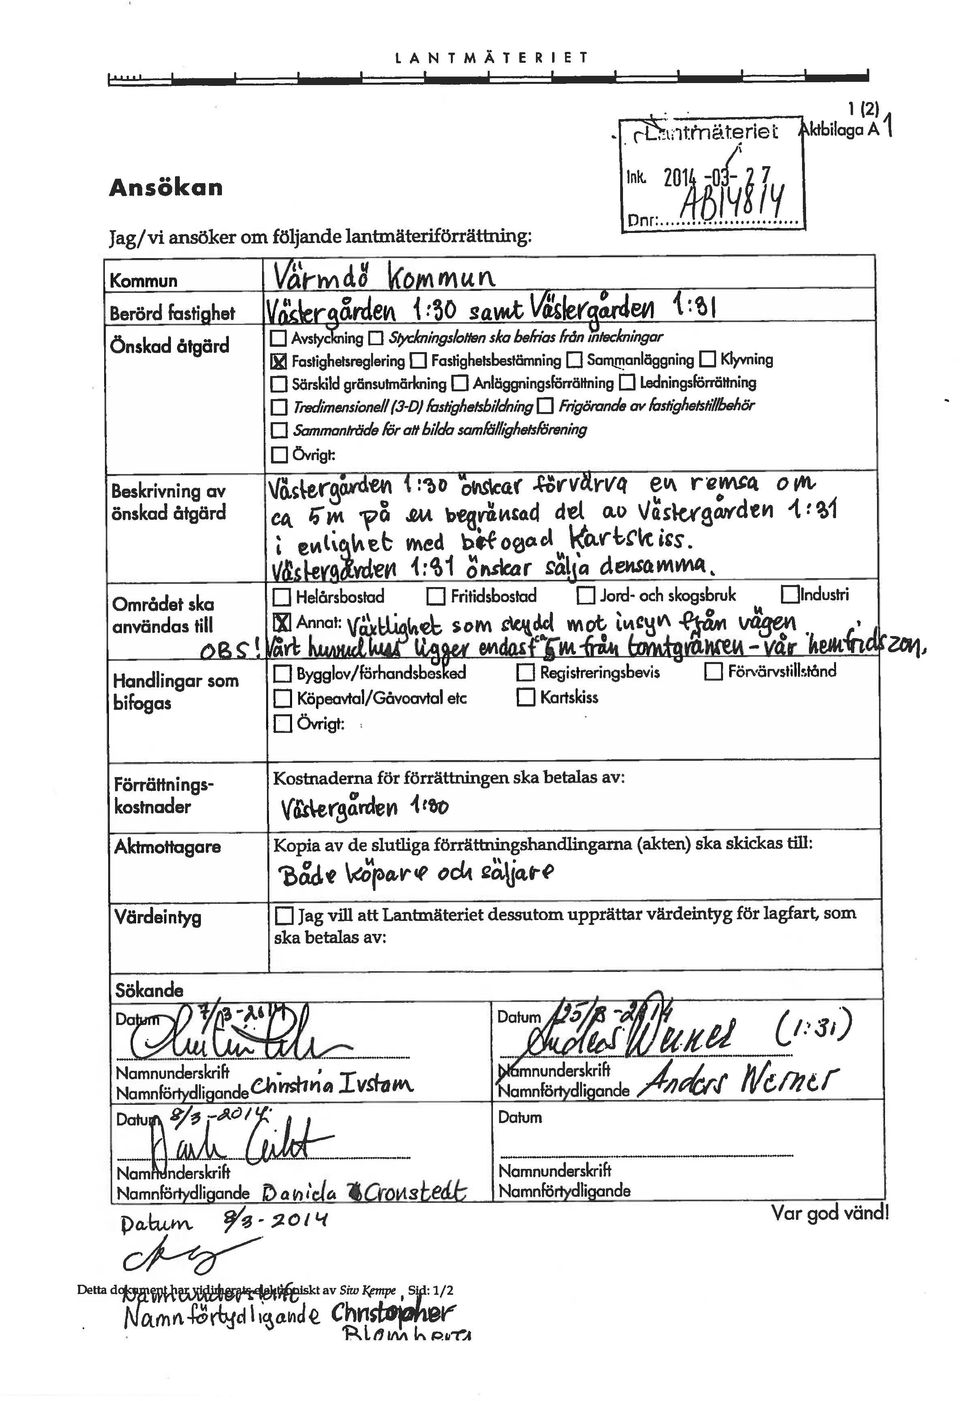 LANTMÄTERIET
1 (2)
Aktbilaga A 1
Lantmäteriet
Ink. 2014 -03- 27
Dnr: AB14814
Ansökan
Jag/vi ansöker om följande lantmäteriförrättning:
Kommun Värmdö Kommun
Berörd fastighet Västergården 1:30 samt Västergården 1:31
Önskad åtgärd ☐ Avstyckning ☐ Styckningslotten ska befrias från inteckningar
☒ Fastighetsreglering ☐ Fastighetsbestämning ☐ Sammanläggning ☐ Klyvning
☐ Särskild gränsutmärkning ☐ Anläggningsförrättning ☐ Ledningsförrättning
☐ Tredimensionell (3-D) fastighetsbildning ☐ Frigörande av fastighetstillbehör
☐ Sammanträde för att bilda samfällighetsförening
☐ Övrigt:
Beskrivning av önskad åtgärd
Västergården 1:30 önskar förvärva en remsa om
ca 5m på en begränsad del av Västergården 1:31
i enlighet med bifogad Kartskiss.
Västergården 1:31 önskar sälja densamma.
Området ska användas till
☐ Helårsbostad ☐ Fritidsbostad ☐ Jord- och skogsbruk ☐ Industri
☒ Annat: Växtlighet som skydd mot insyn från vägen.
OBS! Vårt huvudhus ligger endast 5m från tomtgränsen - vår hemfridszon.
Handlingar som bifogas
☐ Bygglov/förhandsbesked ☐ Registreringsbevis ☐ Förvärvstillstånd
☐ Köpeavtal/Gåvoavtal etc ☐ Kartskiss
☐ Övrigt:
Förrättnings-
kostnader
Kostnaderna för förrättningen ska betalas av:
Västergården 1:30
Aktmottagare Kopia av de slutliga förrättningshandlingarna (akten) ska skickas till:
Både köpare och säljare
Värdeintyg ☐ Jag vill att Lantmäteriet dessutom upprättar värdeintyg för lagfart, som
ska betalas av:
Sökande
Datum 7/3-2014
Namnunderskrift
Namnförtydligande Christina Ivstam
Datum 25/3-2014
Anders Werner (1:31)
Namnunderskrift
Namnförtydligande Anders Werner
Datum 8/3-2014
Namnunderskrift
Namnförtydligande Daniela Cronstedt
Datum
Namnunderskrift
Namnförtydligande
Datum 8/3-2014
Var god vänd!
Detta dokument har vidimerats elektroniskt av Siw Kempe, Sid: 1/2
Namnförtydligande Christopher